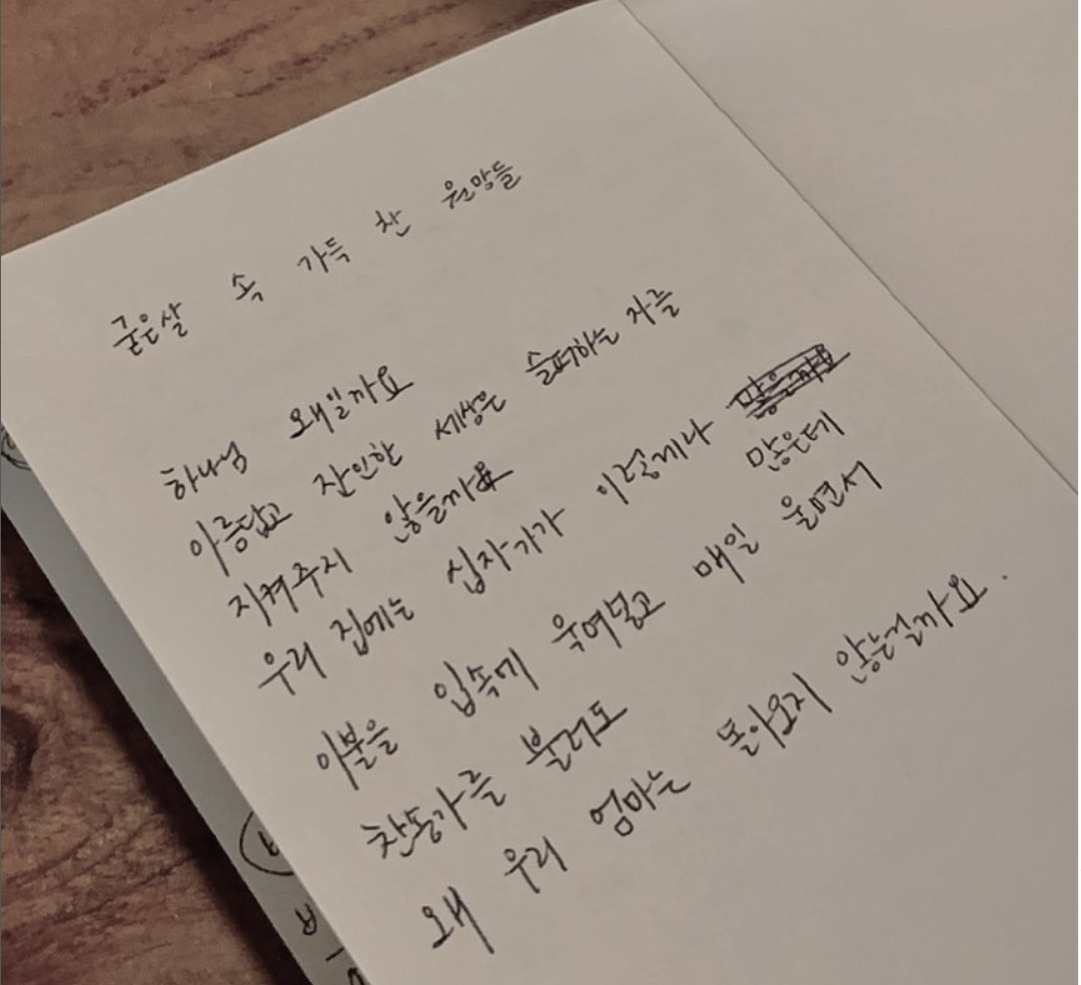 굳은살 속 가득 찬 원망들
하나님 왜일까요
아름답고 잔인한 세상은 슬퍼하는 자를
지켜주지 않을까요
우리 집에는 십자가가 이렇게나 많은데
이불을 입속에 욱여넣고 매일 울면서
찬송가를 불러도
왜 우리 엄마는 돌아오지 않는걸까요.